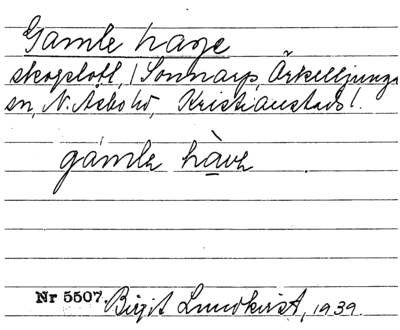 Gamle hage
skogslott, i Sonnarp, Örkelljunga
sn, N. Åsbo hd, Kristianstads l.
gamle havе
Nr 5507. Birgit Lundkvist, 1939.